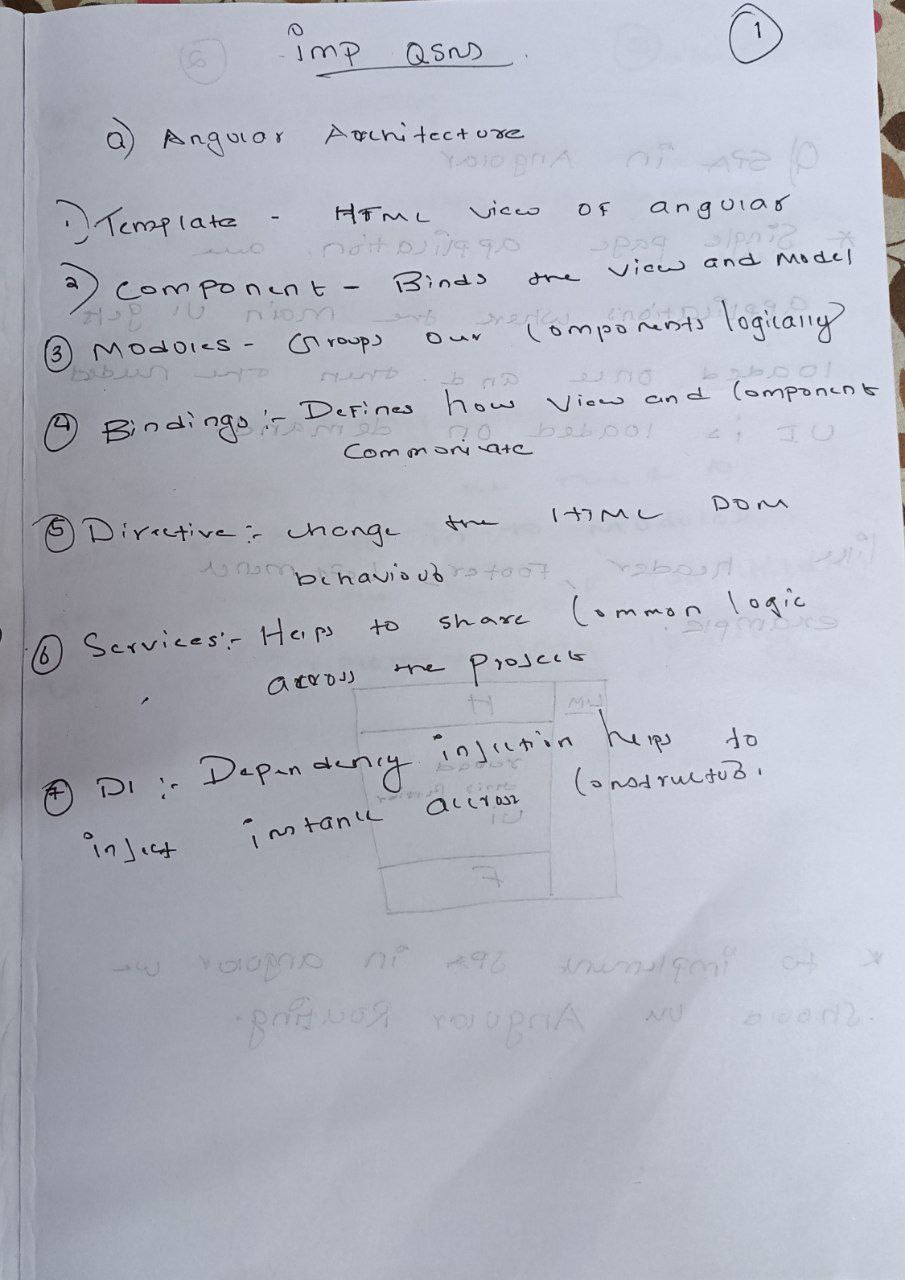 imp QSNS
1
a) Angular Architecture
1) Template - HTML view of angular
2) Component - Binds the view and Model
3 Modules - Groups our components logically
4 Bindings :- Defines how view and component
communicate
5 Directive :- change the HTML DOM
behaviour
6 Services :- Helps to share common logic
across the project
7 DI :- Dependency injection helps to
inject instance accross constructor.